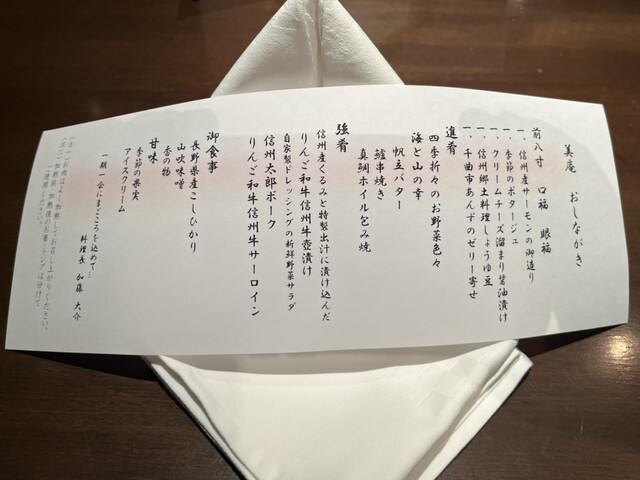 美庵　おしながき
前八寸　口福　眼福
一、信州産サーモンの御造り
一、季節のポタージュ
一、クリームチーズ溜まり醤油漬け
一、信州郷土料理しょうゆ豆
一、千曲市あんずのゼリー寄せ
進肴
四季折々のお野菜色々
海と山の幸
帆立バター
鱸串焼き
真鯛ホイル包み焼
強肴
信州産くるみと特製出汁に漬け込んだ
りんご和牛信州牛壺漬け
自家製ドレッシングの新鮮野菜サラダ
信州太郎ポーク
りんご和牛信州牛サーロイン
御食事
長野県産こしひかり
山吹味噌
香の物
甘味
季節の果実
アイスクリーム
一期一会にまごころを込めて…
料理長　加藤　大介
(注一)お肉はよく加熱してお召し上がりください。
(注二)加熱前、加熱後のお箸、トングは分けて
ご使用ください。